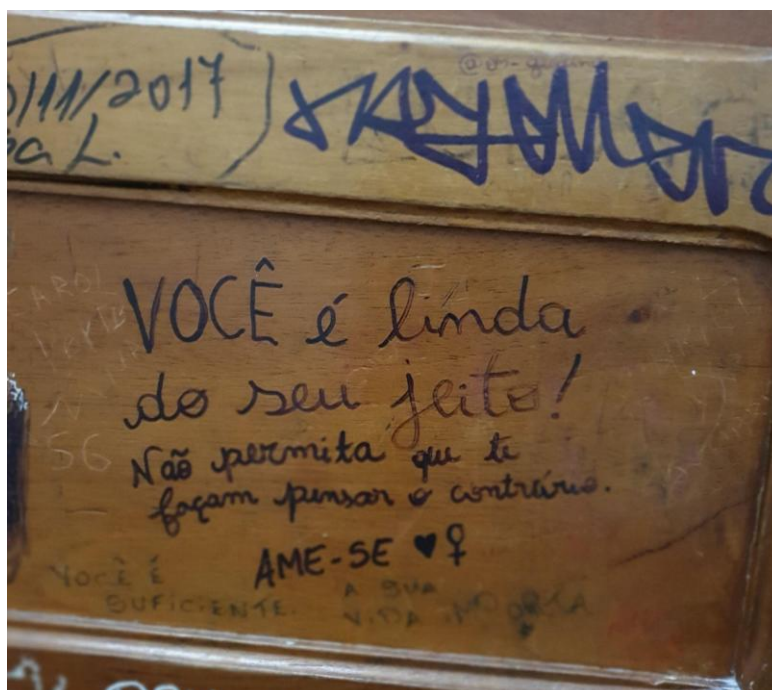 /11/2017
a L.
VOCÊ é linda
do seu jeito!
Não permita que te
façam pensar o contrário.
AME-SE ♥♀
VOCÊ É
SUFICIENTE.
A SUA
VIDA IMPORTA
56